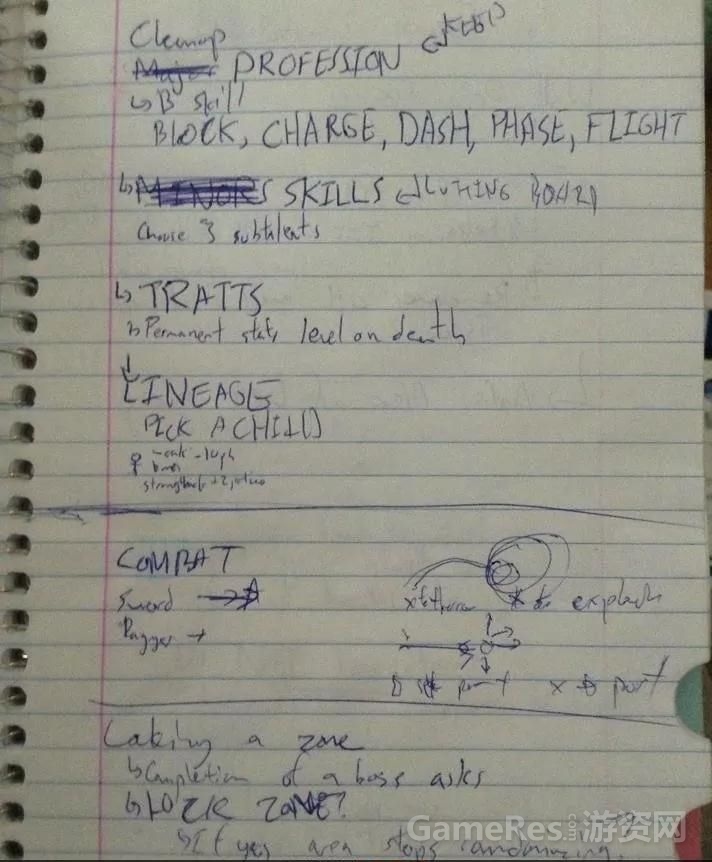 Cleanup
Major PROFESSION ↲ KEEP
↳ B skill
BLOCK, CHARGE, DASH, PHASE, FLIGHT
↳ MINORS SKILLS ↲ CUTTING BOARD
Choose 3 subtalents
↳ TRAITS
↳ Permanent stats level on death
↓
LINEAGE
PICK A CHILD
COMBAT
Sword →
Dagger →
x to throw x to explode
port x to port
Locking a zone
↳ Completion of a boss asks
↳ LOCK ZONE?
↳ If yes area stops randomizing
GameRes.com 游资网